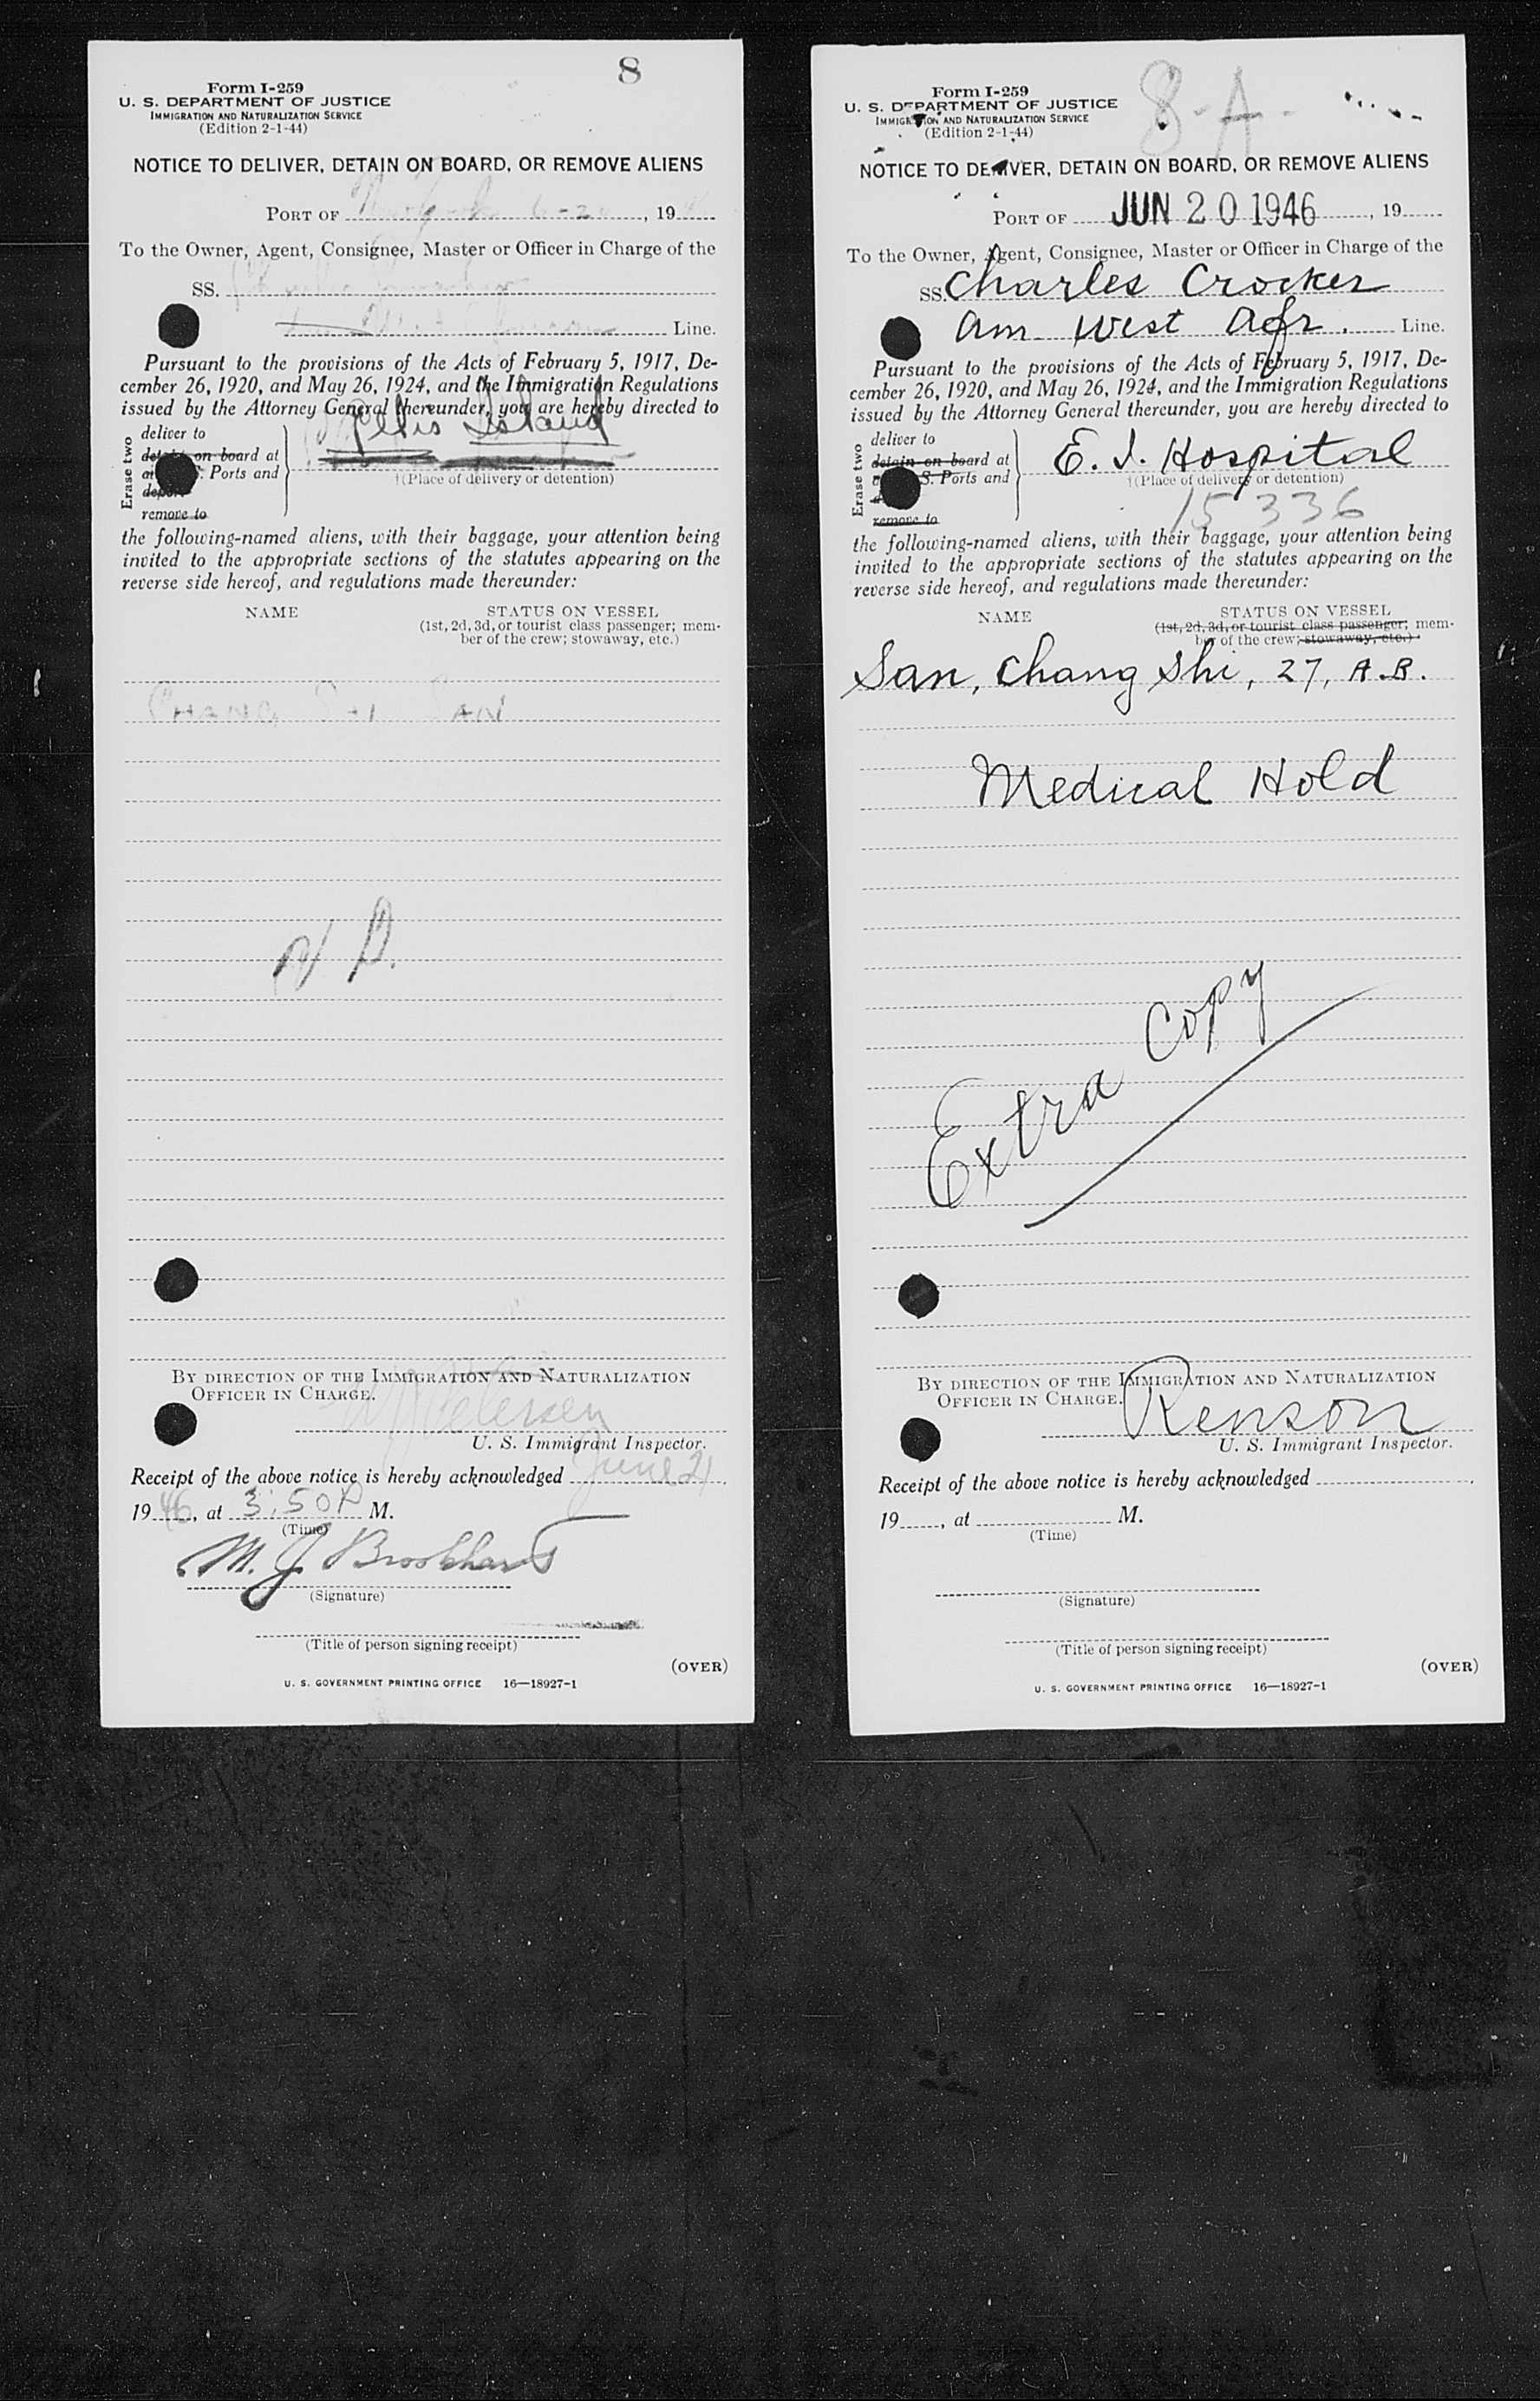 8
Form I-259
U. S. DEPARTMENT OF JUSTICE
IMMIGRATION AND NATURALIZATION SERVICE
(Edition 2-1-44)
NOTICE TO DELIVER, DETAIN ON BOARD, OR REMOVE ALIENS
PORT OF New York 6-20, 19
To the Owner, Agent, Consignee, Master or Officer in Charge of the
SS.
Line.
Pursuant to the provisions of the Acts of February 5, 1917, De-
cember 26, 1920, and May 26, 1924, and the Immigration Regulations
issued by the Attorney General thereunder, you are hereby directed to
Erase two
deliver to
detain on board at
S. Ports and
deport
remove to
Ellis Island
†(Place of delivery or detention)
the following-named aliens, with their baggage, your attention being
invited to the appropriate sections of the statutes appearing on the
reverse side hereof, and regulations made thereunder:
NAME
STATUS ON VESSEL
(1st, 2d, 3d, or tourist class passenger; mem-
ber of the crew; stowaway, etc.)
CHANG SHI SAN
BY DIRECTION OF THE IMMIGRATION AND NATURALIZATION
OFFICER IN CHARGE.
Petersen
U. S. Immigrant Inspector.
Receipt of the above notice is hereby acknowledged June 21
1946, at 3:50 P M.
(Time)
M. J. Brookhart
(Signature)
(Title of person signing receipt)
(OVER)
U. S. GOVERNMENT PRINTING OFFICE 16—18927-1
8-A-
Form I-259
U. S. DEPARTMENT OF JUSTICE
IMMIGRATION AND NATURALIZATION SERVICE
(Edition 2-1-44)
NOTICE TO DELIVER, DETAIN ON BOARD, OR REMOVE ALIENS
PORT OF JUN 20 1946, 19
To the Owner, Agent, Consignee, Master or Officer in Charge of the
SS. Charles Crocker
Am West Afr. Line.
Pursuant to the provisions of the Acts of February 5, 1917, De-
cember 26, 1920, and May 26, 1924, and the Immigration Regulations
issued by the Attorney General thereunder, you are hereby directed to
Erase two
deliver to
detain on board at
S. Ports and
remove to
E. I. Hospital
†(Place of delivery or detention)
15336
the following-named aliens, with their baggage, your attention being
invited to the appropriate sections of the statutes appearing on the
reverse side hereof, and regulations made thereunder:
NAME
STATUS ON VESSEL
(1st, 2d, 3d, or tourist class passenger; mem-
ber of the crew; stowaway, etc.)
San, Chang Shi, 27, A.B.
Medical Hold
Extra Copy
BY DIRECTION OF THE IMMIGRATION AND NATURALIZATION
OFFICER IN CHARGE.
Renson
U. S. Immigrant Inspector.
Receipt of the above notice is hereby acknowledged
19, at M.
(Time)
(Signature)
(Title of person signing receipt)
(OVER)
U. S. GOVERNMENT PRINTING OFFICE 16—18927-1